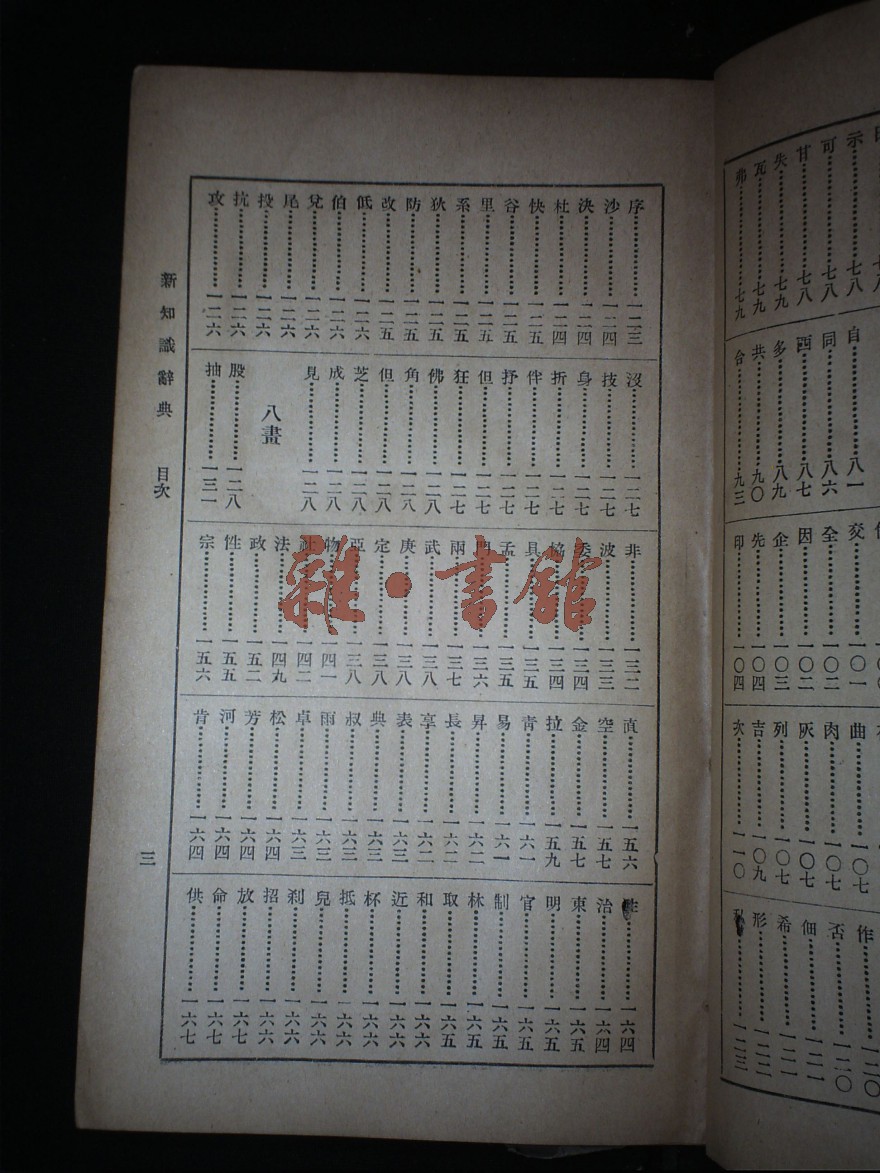 示……七八
可……七八
甘……七八
失……七九
瓦……七九
弗……七九
自……八一
同……八六
西……八七
多……八九
共……九〇
合……九三
交……一〇一
全……一〇二
因……一〇二
企……一〇三
先……一〇四
印……一〇四
曲……一〇七
肉……一〇七
灰……一〇七
列……一〇七
吉……一〇九
次……一一〇
作……一二〇
否……一二〇
佃……一二一
希……一二一
形……一二二
私……一二三
序……一二三
沙……一二四
決……一二四
杜……一二四
快……一二五
谷……一二五
里……一二五
系……一二五
狄……一二五
防……一二五
改……一二五
低……一二六
伯……一二六
兌……一二六
尾……一二六
投……一二六
抗……一二六
攻……一二六
沒……一二七
技……一二七
身……一二七
折……一二七
伴……一二七
抒……一二七
但……一二七
狂……一二七
佛……一二八
角……一二八
但……一二八
芝……一二八
成……一二八
見……一二八
八畫
股……一二八
抽……一三一
非……一三二
波……一三三
委……一三四
協……一三四
具……一三五
孟……一三五
門……一三六
兩……一三七
武……一三八
庚……一三八
定……一三八
亞……一三八
物……一四一
社……一四二
法……一四九
政……一五二
性……一五五
宗……一五六
直……一五六
空……一五七
金……一五七
拉……一五九
青……一六一
易……一六一
昇……一六二
長……一六二
享……一六二
表……一六三
典……一六三
叔……一六三
雨……一六三
卓……一六三
松……一六四
芳……一六四
河……一六四
肯……一六四
……一六四
治……一六四
東……一六五
明……一六五
官……一六五
制……一六五
林……一六五
取……一六五
和……一六六
近……一六六
杯……一六六
抵……一六六
兒……一六六
刹……一六六
招……一六六
放……一六七
命……一六七
供……一六七
新知識辭典 目次
三
雜·書館